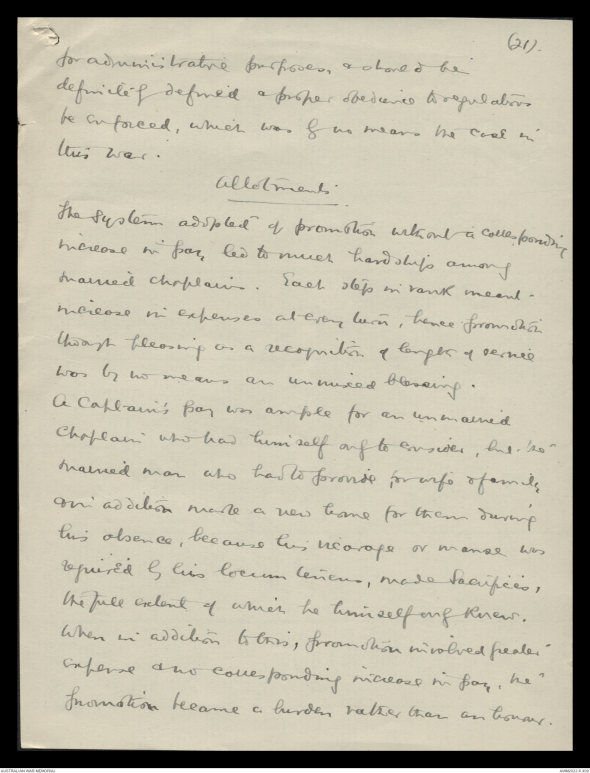 (21).
for administrative purposes, & should be
definitely defined & proper obedience to regulations
be enforced, which was by no means the case in
this war.
Allotments.
The system adopted of promotion without a corresponding
increase in pay, led to much hardship among
married chaplains. Each step in rank meant
increase in expenses at every turn, hence promotion
though pleasing as a recognition of length of service
was by no means an unmixed blessing.
A Captain's pay was ample for an unmarried
Chaplain who had himself only to consider, but the
married man who had to provide for wife & family
& in addition make a new home for them during
his absence, because his vicarage or manse was
required by his locum tenens, made sacrifices,
the full extent of which he himself only knew.
When in addition to this, promotion involved greater
expense & no corresponding increase in pay, the
promotion became a burden rather than an honour.
AUSTRALIAN WAR MEMORIAL